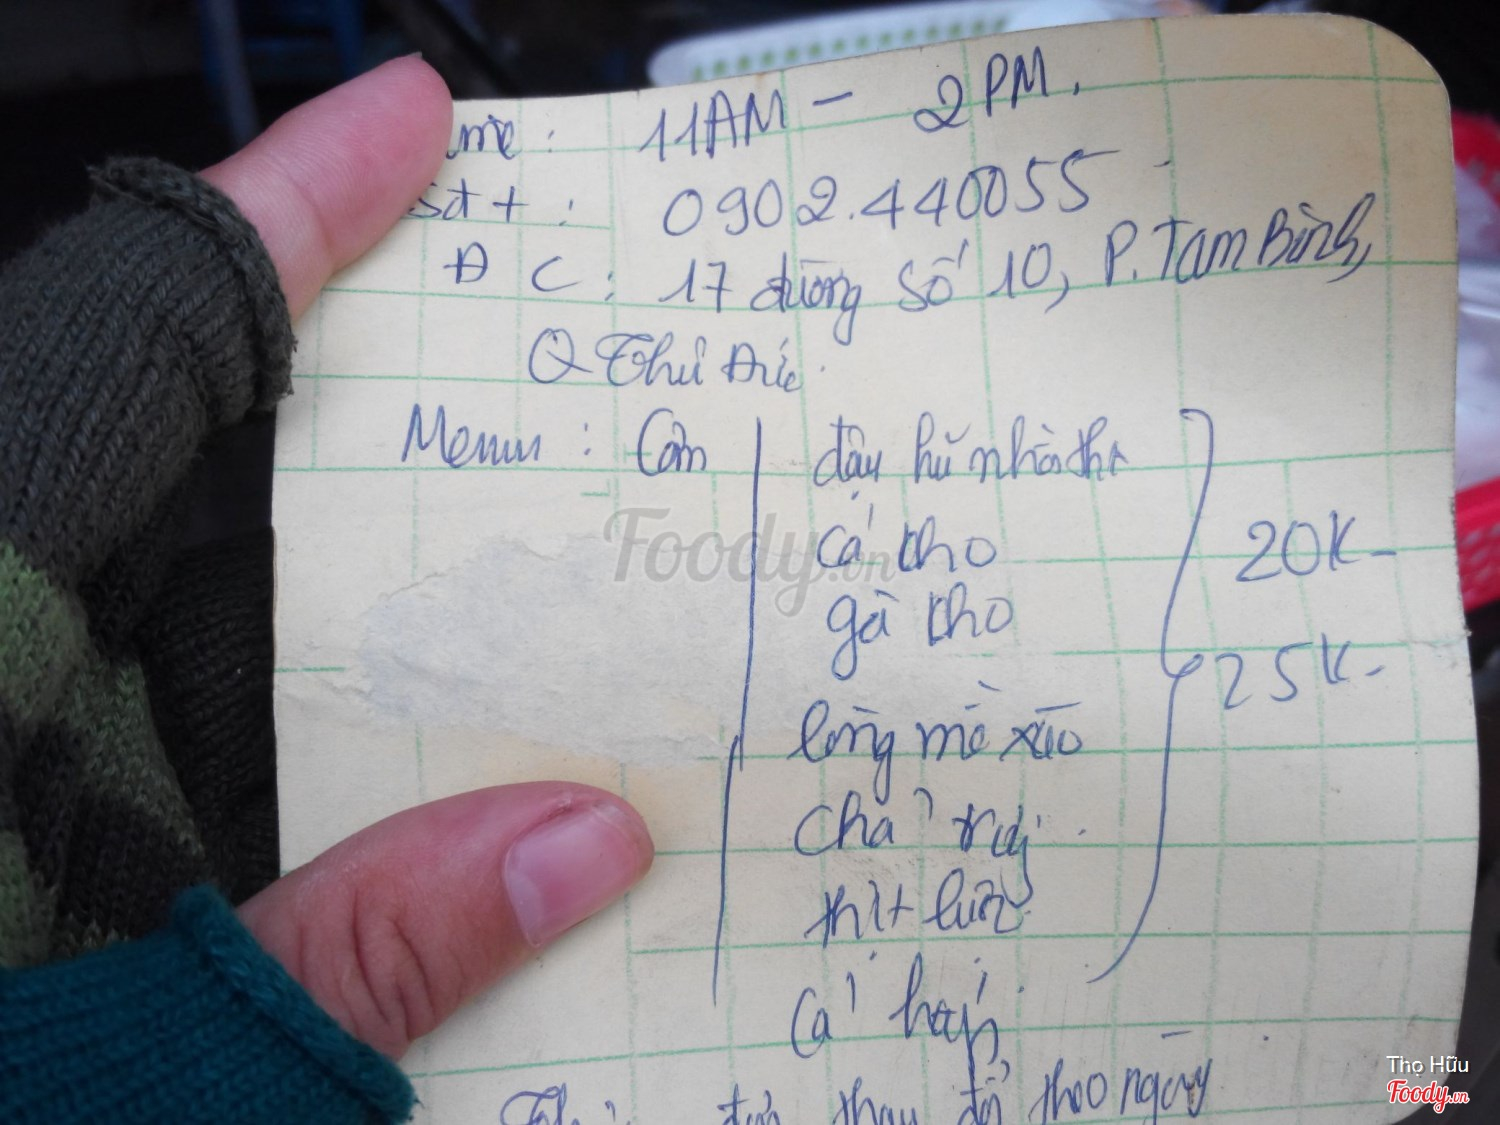 ime : 11AM - 2PM.
sđt : 0902.440055
ĐC : 17 đường số 10, P. Tam Bình,
Q Thủ Đức.
Menu : Cơm
đậu hũ nhồi thịt
cá kho
gà kho
20K-
25K-
lòng mề xào
chả trứng
thịt luộc
cá hấp
Thực đơn thay đổi theo ngày
Foody.vn
Thọ Hữu
Foody.vn